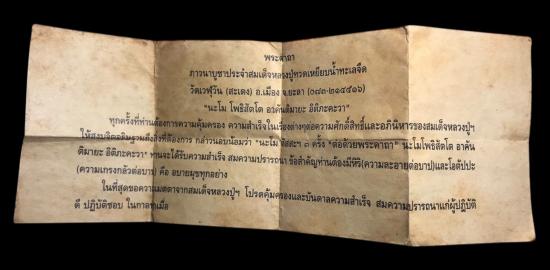 พระคาถา
ภาวนาบูชาประจำสมเด็จหลวงปู่ทวดเหยียบน้ำทะเลจืด
วัดเวฬุวัน (สะเตง) อ.เมือง จ.ยะลา (๐๘๓-๒๑๔๔๑๖)
"นะโม โพธิสัตโต อาคันติมายะ อิติภะคะวา"
ทุกครั้งที่ท่านต้องการความคุ้มครอง ความสำเร็จในเรื่องต่างๆต่อความศักดิ์สิทธิ์และอภินิหารของสมเด็จหลวงปู่ฯ
ให้สงบจิตอธิษฐานดึงสิ่งที่ต้องการ กล่าวนอบน้อมว่า "นะโม ตัสสะฯ ๓ ครั้ง "ต่อด้วยพระคาถา" นะโมโพธิสัตโต อาคัน
ติมายะ อิติภะคะวา" ท่านจะได้รับความสำเร็จ สมความปรารถนา ข้อสำคัญท่านต้องมีหิริ(ความละอายต่อบาป)และโอตัปปะ
(ความเกรงกลัวต่อบาป) คือ อบายมุขทุกอย่าง
ในที่สุดขอความเมตตาจากสมเด็จหลวงปู่ฯ โปรดคุ้มครองและบันดาลความสำเร็จ สมความปรารถนาแก่ผู้ปฏิบัติ
ดี ปฏิบัติชอบ ในกาลทุกเมื่อ